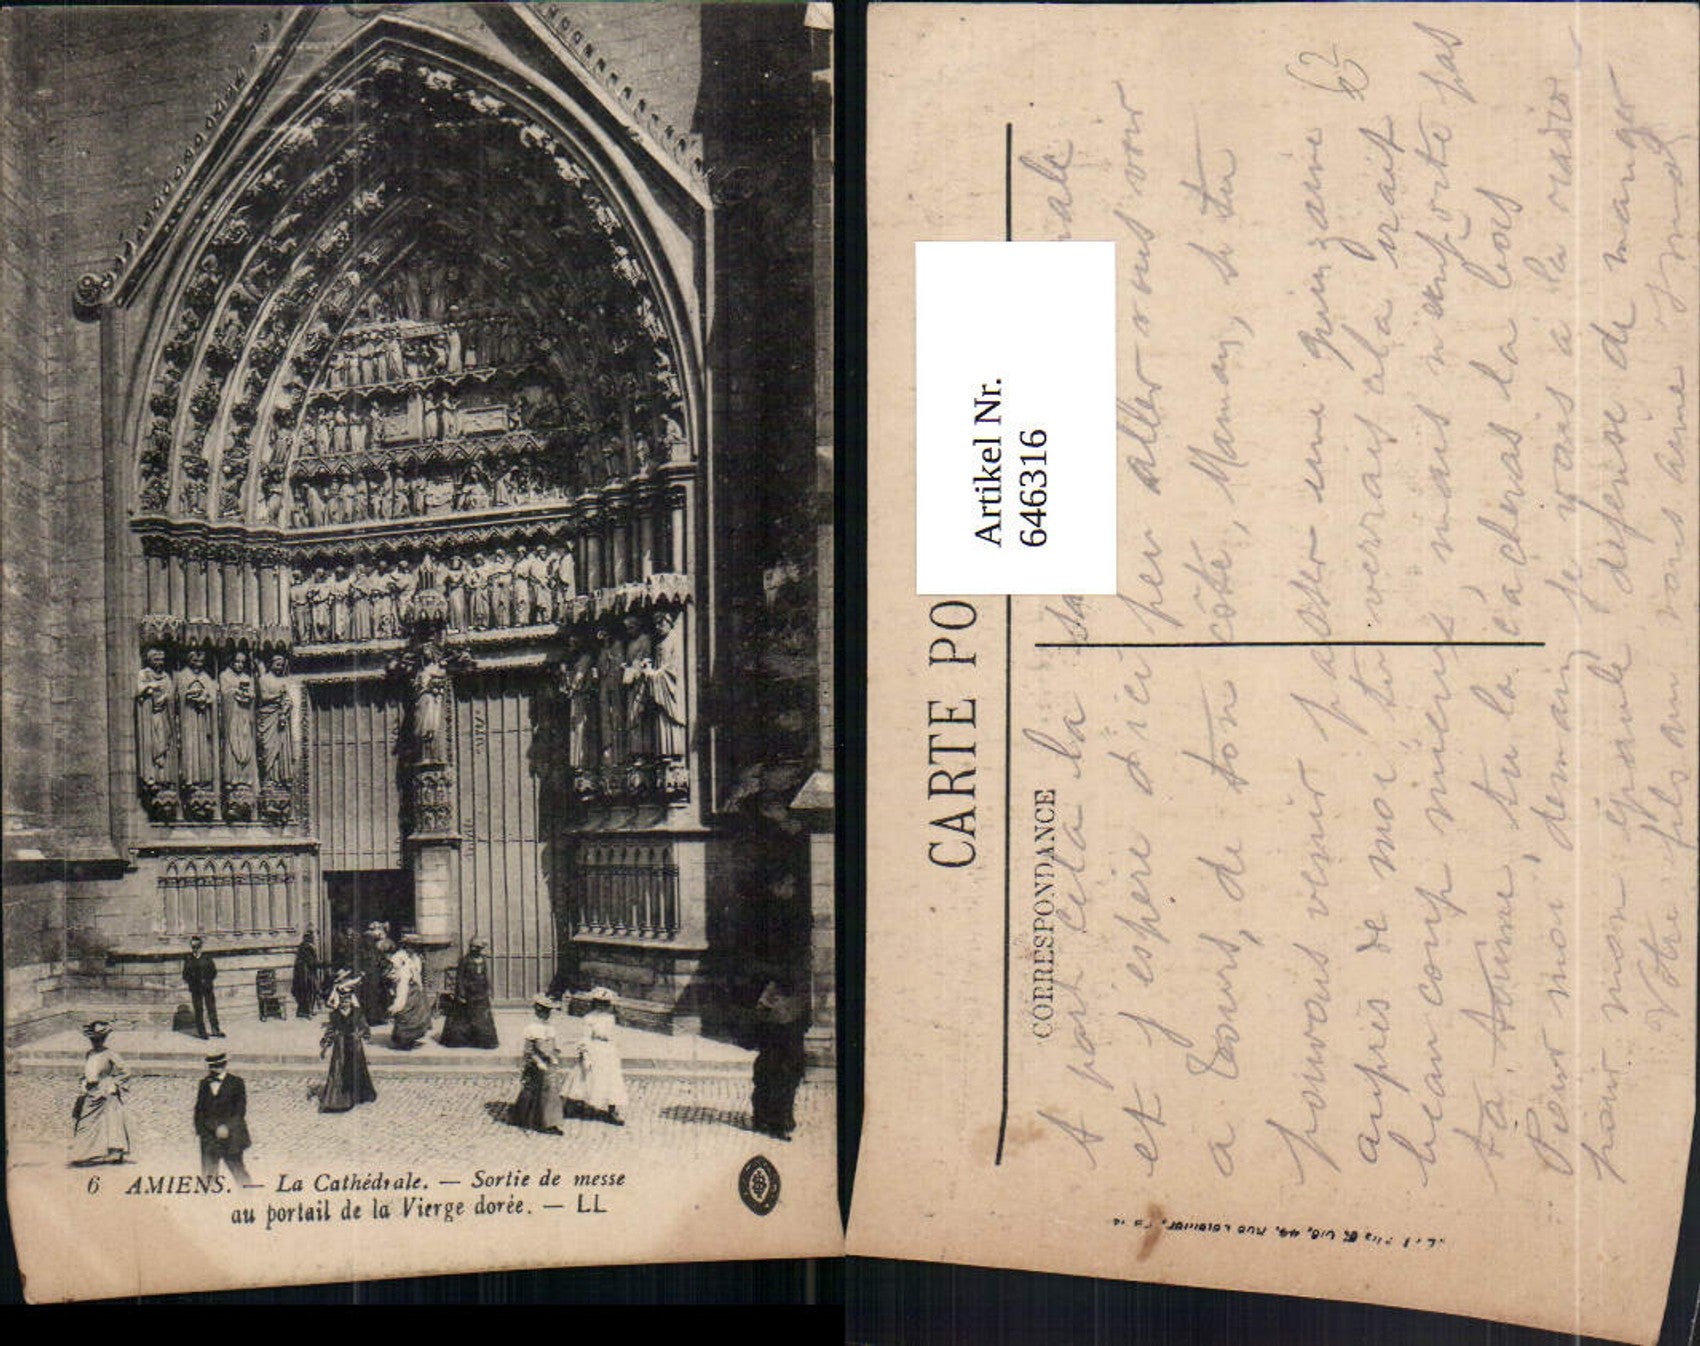 6 AMIENS. — La Cathédrale. — Sortie de messe
au portail de la Vierge dorée. — LL
CARTE PO
CORRESPONDANCE
Artikel Nr.
646316
A part cela la
et j'espère d'ici peu aller vous voir
a Tours, de ton côté, Maman, si tu
pouvais venir passer une quinzaine
auprès de moi tu verrais cela irait
beaucoup mieux mais n'emporte pas
ta tu la cacheras la bois
Pour moi, demain je vais à la radio
pour mon épaule défense de manger
Votre fils qui vous aime